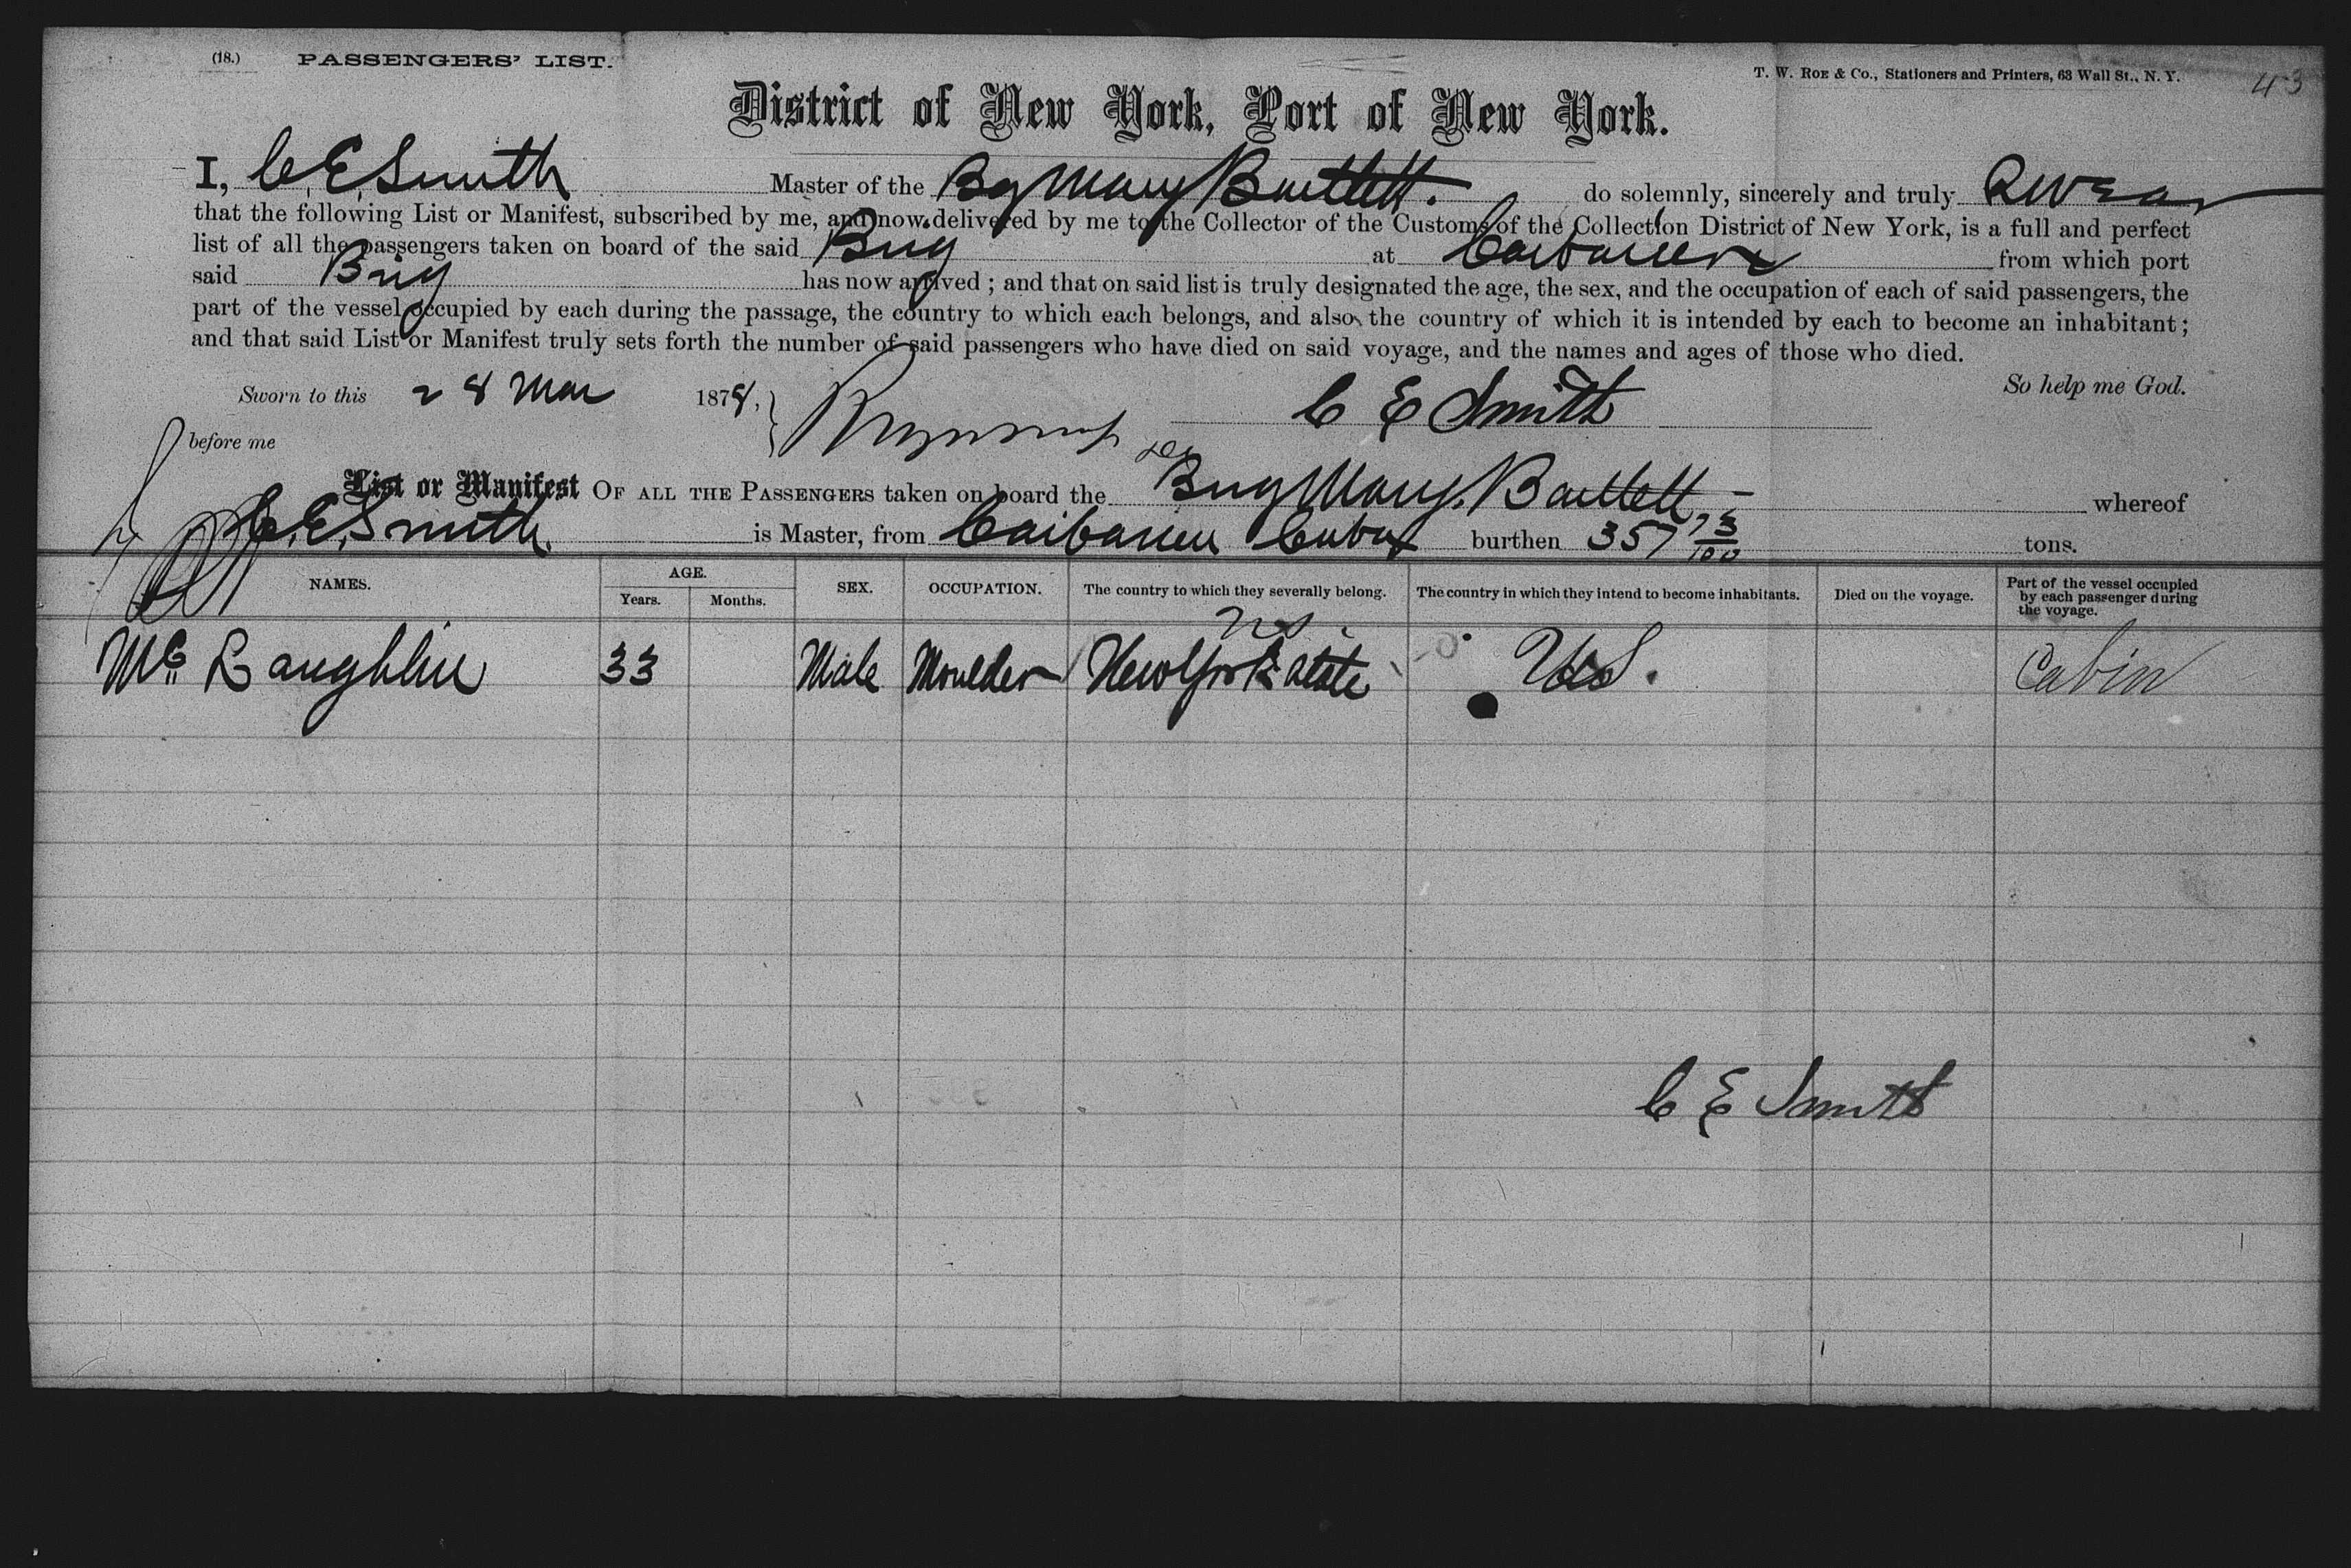 (18.) PASSENGERS' LIST.
T. W. ROE & Co., Stationers and Printers, 63 Wall St., N. Y.
43
District of New York, Port of New York.
I, C. E. Smith Master of the Bg Mary Bartlett. do solemnly, sincerely and truly swear
that the following List or Manifest, subscribed by me, and now delivered by me to the Collector of the Customs of the Collection District of New York, is a full and perfect
list of all the passengers taken on board of the said Brig at Caibarien from which port
said Brig has now arrived; and that on said list is truly designated the age, the sex, and the occupation of each of said passengers, the
part of the vessel occupied by each during the passage, the country to which each belongs, and also the country of which it is intended by each to become an inhabitant;
and that said List or Manifest truly sets forth the number of said passengers who have died on said voyage, and the names and ages of those who died.
Sworn to this 28 Mar 1878, C E Smith So help me God.
before me
List or Manifest OF ALL THE PASSENGERS taken on board the Brig Mary Bartlett whereof
C. E. Smith. is Master, from Caibarien Cuba burthen 357 73/100 tons.
NAMES. AGE. Years. Months. SEX. OCCUPATION. The country to which they severally belong. The country in which they intend to become inhabitants. Died on the voyage. Part of the vessel occupied by each passenger during the voyage.
Mc Laughlin 33 Male Moulder New York State U.S. Cabin
C E Smith